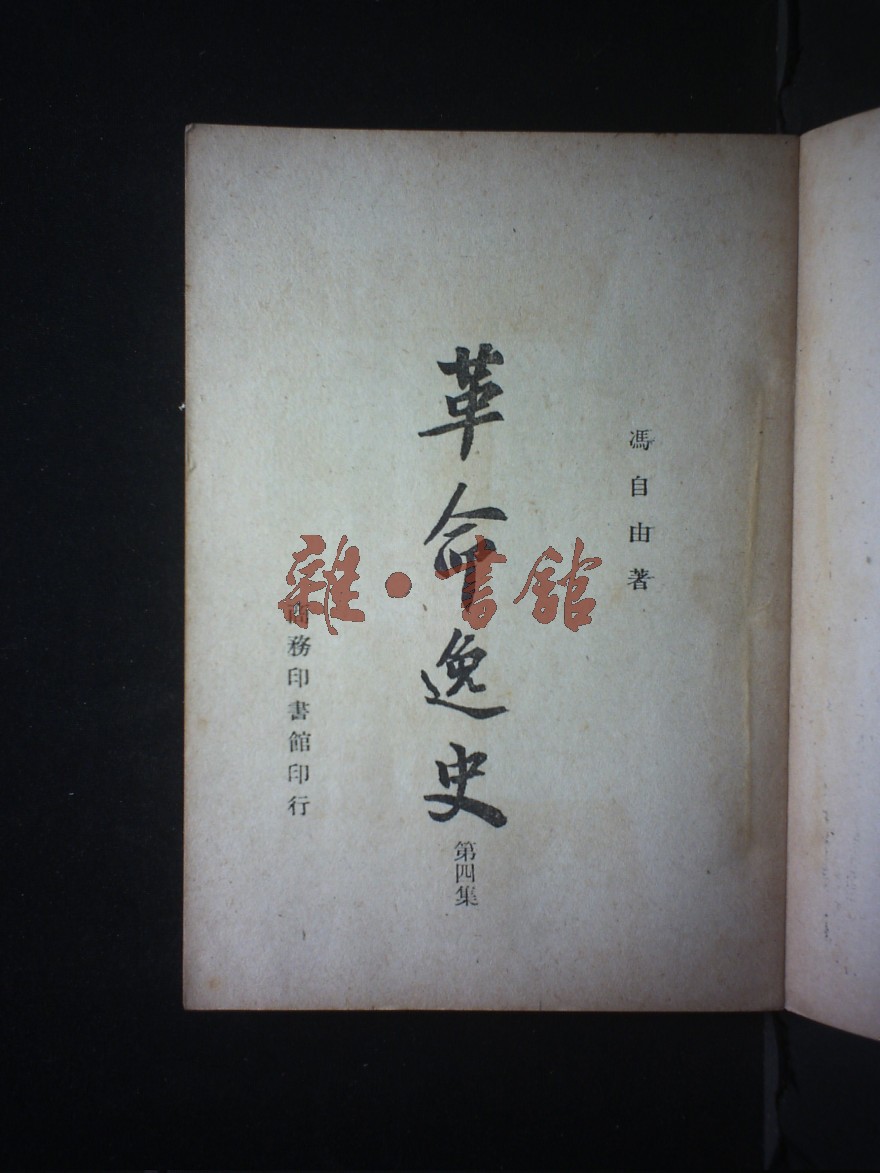 馮自由著
革命逸史
第四集
商務印書館印行
雜·書館